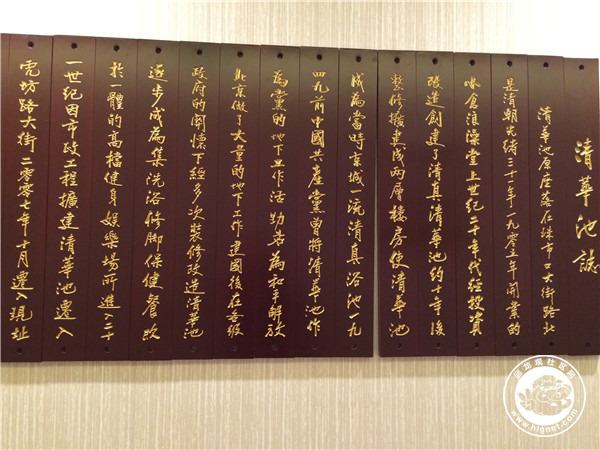 清華池誌
清華池原座落在珠市口大街路北
是清朝光緒三十年一九零五年開業的
倉浪澡堂上世紀二十年代經投資
改造創建了清真清華池約十年後
整修擴建成兩層樓房使清華池
成為當時京城一流清真浴池一九
四九前中國共產黨曾將清華池作
為黨的地下工作活動站為和平解放
北京做了大量的地下工作建國後在各級
政府的關懷下經多次裝修改造清華池
逐步成為集洗浴修脚保健餐飲
於一體的高檔健身娛樂場所進入二十
一世紀因市政工程擴建清華池遷入
虎坊路大街二零零七年十月遷入現址
回龍觀社區網
www.hlgnet.com